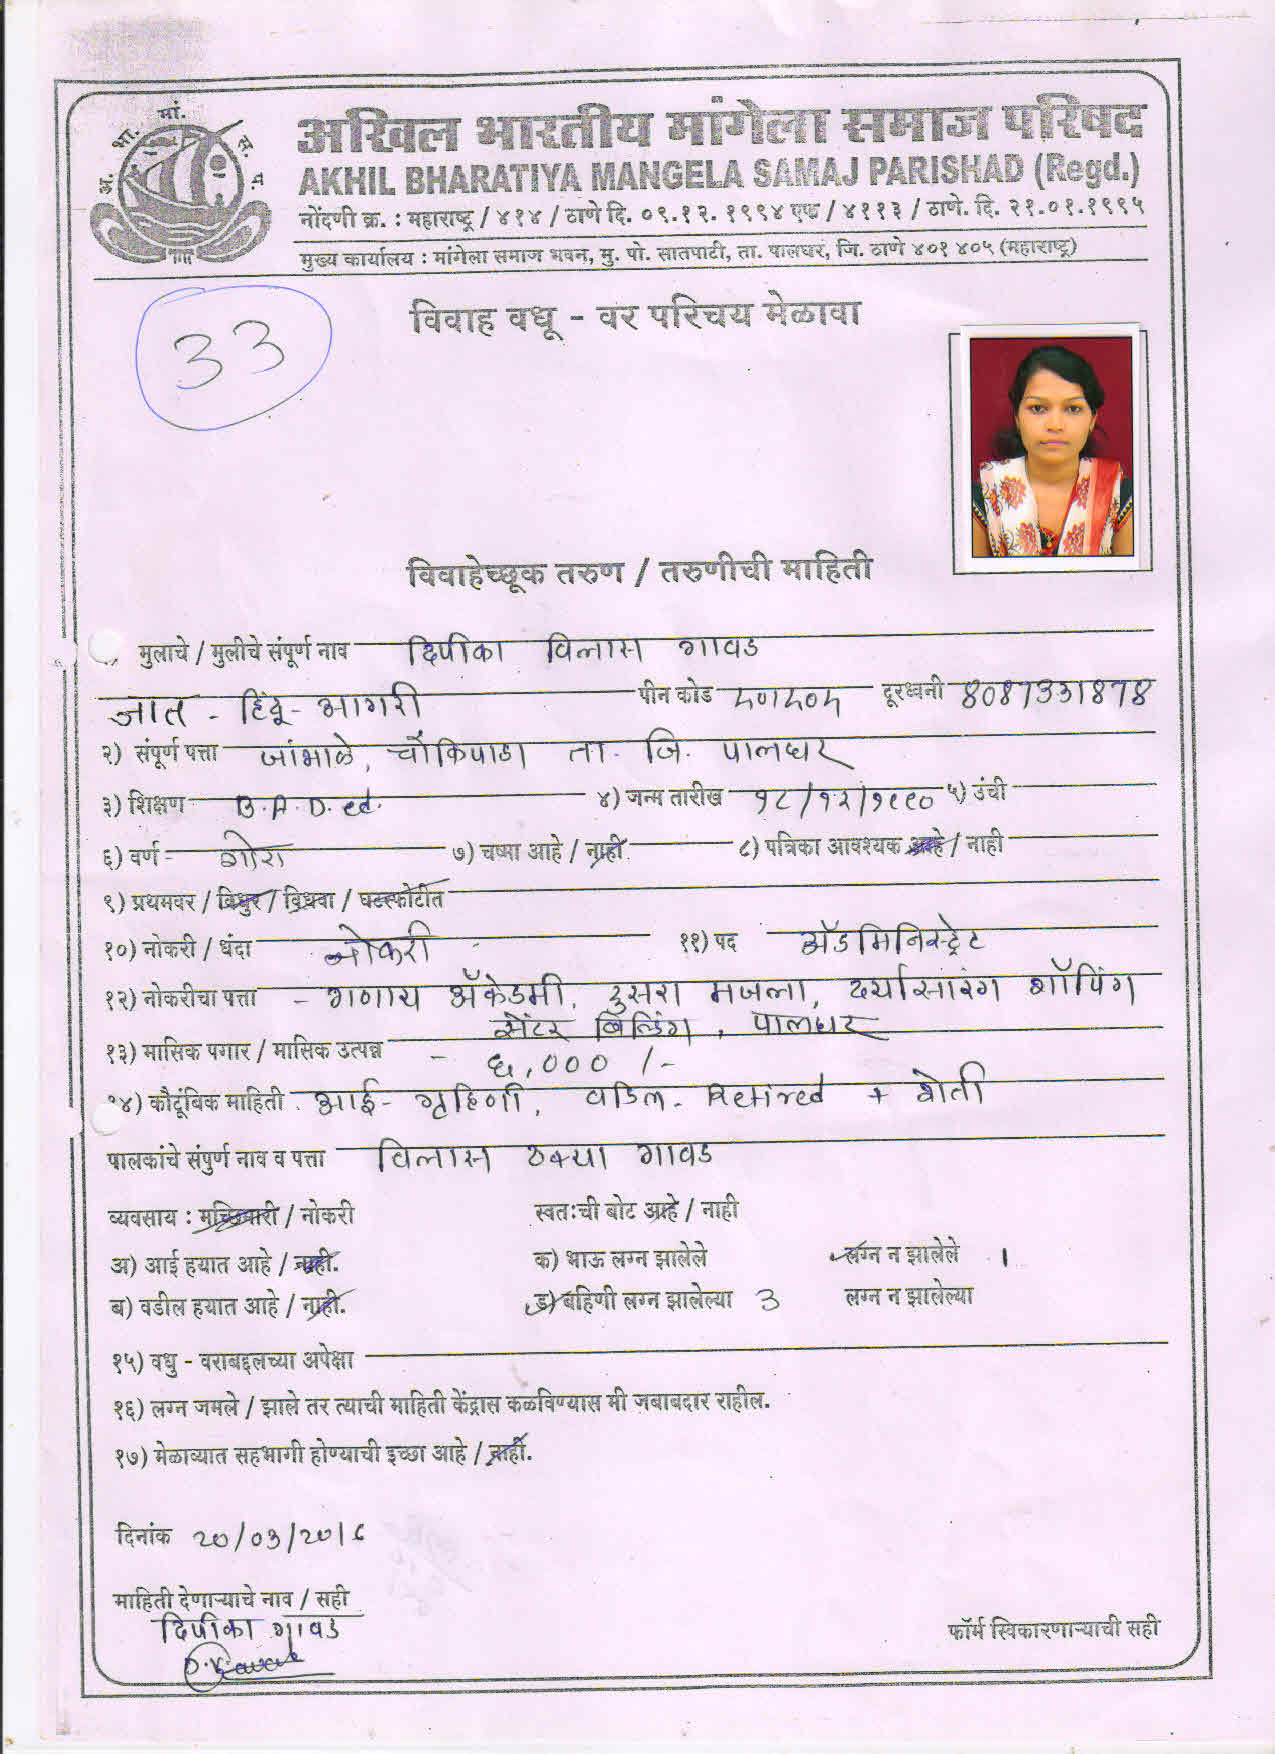 अ. भा. मां. स. प.
अखिल भारतीय मांगेला समाज परिषद
AKHIL BHARATIYA MANGELA SAMAJ PARISHAD (Regd.)
नोंदणी क्र. : महाराष्ट्र / ४१४ / ठाणे दि. ०९.१२. १९९४ एफ / ४११३ / ठाणे. दि. २१.०१.१९९५
मुख्य कार्यालय : मांगेला समाज भवन, मु. पो. सातपाटी, ता. पालघर, जि. ठाणे ४०१ ४०५ (महाराष्ट्र)
विवाह वधू - वर परिचय मेळावा
33
विवाहेच्छूक तरुण / तरुणीची माहिती
मुलाचे / मुलीचे संपूर्ण नाव दिपीका विलास गावड
जात - हिंदू - आगरी पीन कोड ४०१४०४ दूरध्वनी 8087331878
२) संपूर्ण पत्ता जांभाळे, चौकिपाडा ता. जि. पालघर
३) शिक्षण B.A.D.ed. ४) जन्म तारीख १८/१२/१९९० ५) उंची
६) वर्ण - गोरा ७) चष्मा आहे / नाही ८) पत्रिका आवश्यक आहे / नाही
९) प्रथमवर / विधुर / विधवा / घटस्फोटीत
१०) नोकरी / धंदा नोकरी ११) पद अ‍ॅडमिनिस्ट्रेट
१२) नोकरीचा पत्ता - गणाय अ‍ॅकेडमी, दुसरा मजला, दर्यासारंग शॉपिंग
सेंटर बिल्डिंग, पालघर
१३) मासिक पगार / मासिक उत्पन्न - ६,००० /-
१४) कौटूंबिक माहिती . आई - गृहिणी, वडिल - Retired + शेती
पालकांचे संपुर्ण नाव व पत्ता विलास ठक्या गावड
व्यवसाय : मच्छिमारी / नोकरी स्वतःची बोट आहे / नाही
अ) आई हयात आहे / नाही. क) भाऊ लग्न झालेले लग्न न झालेले 1
ब) वडील हयात आहे / नाही. ड) बहिणी लग्न झालेल्या 3 लग्न न झालेल्या
१५) वधु - वराबद्दलच्या अपेक्षा
१६) लग्न जमले / झाले तर त्याची माहिती केंद्रास कळविण्यास मी जबाबदार राहील.
१७) मेळाव्यात सहभागी होण्याची इच्छा आहे / नाही.
दिनांक 20/03/2016
माहिती देणाऱ्याचे नाव / सही
दिपीका गावड
फॉर्म स्विकारणाऱ्याची सही